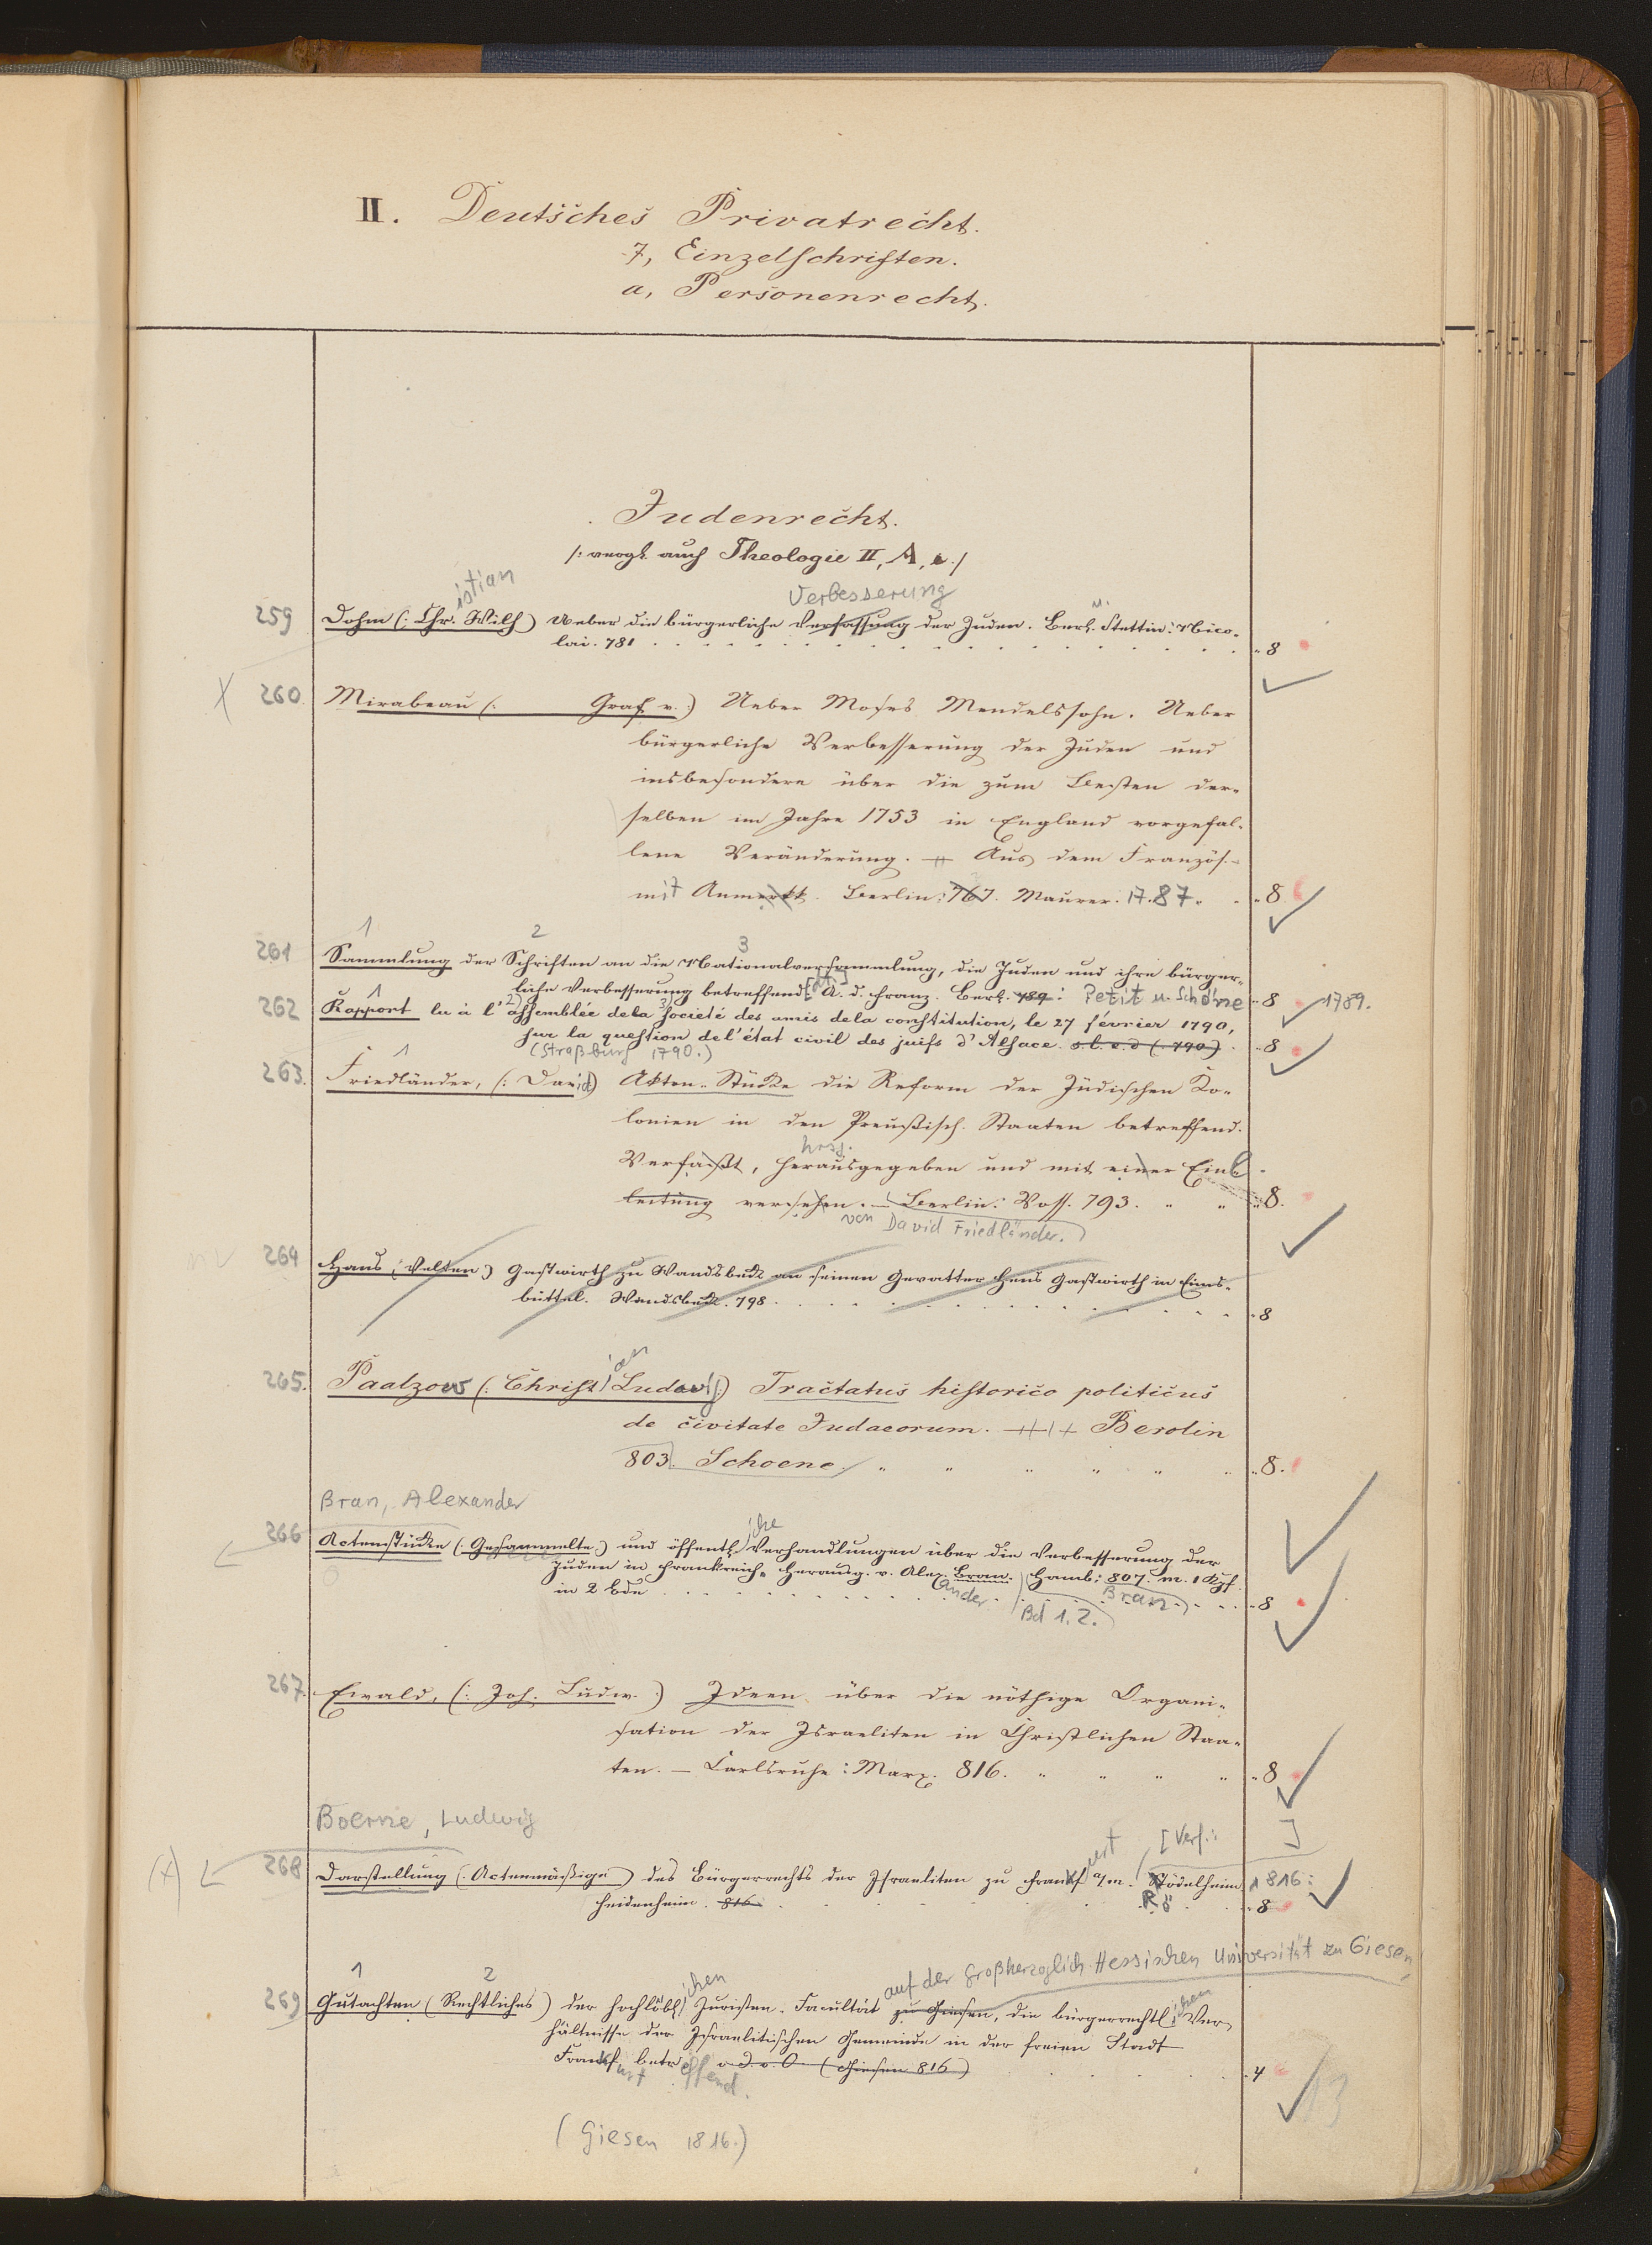 II. Deutsches Privatrecht.
7, Einzelschriften.
a, Personenrecht.
Judenrecht.
/: vergl. auch Theologie II, A, c./
istian
Verbesserung
259 Dohm (: Chr. Wilh) Ueber die bürgerliche Verfassung der Juden. Berl. u. Stettin: Nico-
lai. 781 8
X 260 Mirabeau (: Graf v.:) Ueber Moses Mendelssohn. Ueber
bürgerliche Verbesserung der Juden und
insbesondere über die zum Besten der-
selben im Jahre 1753 in England vorgefal-
lene Veränderung. Aus dem Französ.
mit Anmerkk. Berlin: 767. Maurer. 17.87. 8.
1 2 3
261 Sammlung der Schriften an die Nationalversammlung, die Juden und ihre bürger-
liche Verbesserung betreffend A. d. Franz. Berl. 789: Petit u. Schöne 8 1789.
262 Rapport lu à l'assemblée de la societé des amis de la constitution, le 27 février 1790,
sur la question de l'état civil des juifs d'Alsace. s. l. e. d (790). 8
(Straßburg 1790.)
263. Friedländer, (: David) Akten-Stücke die Reform der Jüdischen Ko-
lonien in den Preußisch. Staaten betreffend.
hrsg.
Verfaßt, herausgegeben und mit einer Ein-
leitung versehen. – Berlin: Voss. 793. 8.
von David Friedländer.)
264 Hans (Velten) Gastwirth zu Wandsbeck an seinen Gevatter Hans Gastwirth in Eims-
büttel. Wandsbeck. 798. 8
ian
265. Paalzow (: Christ Ludw:) Tractatus historico politicus
de civitate Judaeorum. Berolin
803. Schoene. 8.
Bran, Alexander
266 Actenstücke (: Gesammelte:) und öffentliche Verhandlungen über die Verbesserung der
Juden in Frankreich. Herausg. v. Alex. Bran. Hamb: 807. m. 1 Kpf.
in 2 Bde ander Bran 8
Bd 1. 2.
267. Ewald, (: Joh. Ludw.:) Ideen über die nöthige Organi-
sation der Israeliten in Christlichen Staa-
ten. – Carlsruhe: Marx. 816. 8
Boerne, Ludwig
[Verf.: ]
(X) 268 Darstellung (: Actenmäßige) des Bürgerrechts der Israeliten zu Frankfurt a/m. Rödelheim 1816:
Heidenheim. 816 Rö 8
1 2 auf der Großherzoglich-Hessischen Universität zu Giesen,
269 Gutachten (Rechtliches) der hochlöblichen Juristen-Facultät zu Giesen, die bürgerrechtlichen Ver-
hältnisse der Israelitischen Gemeinde in der freien Stadt
Frankfurt betreffend. o. O (Giesen 816) 4
(Giesen 1816.)
13